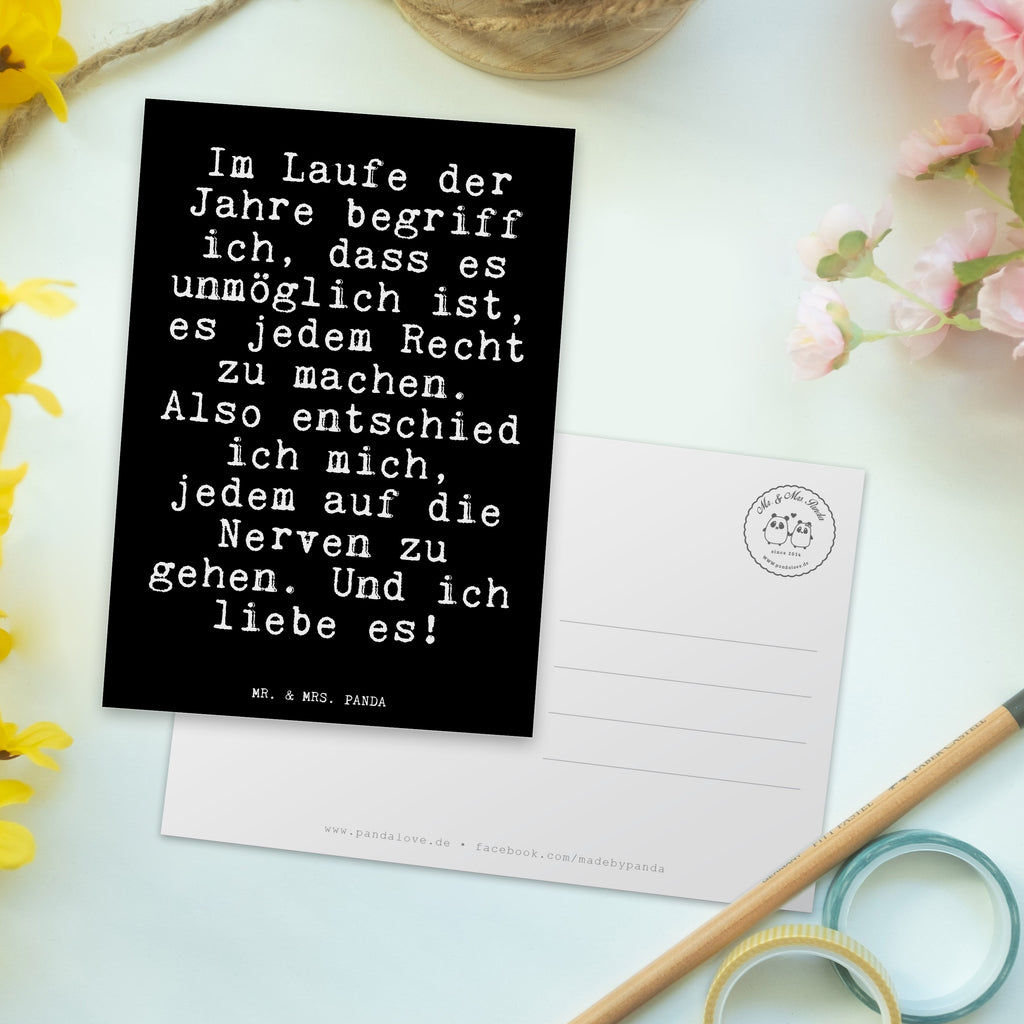 Im Laufe der
Jahre begriff
ich, dass es
unmöglich ist,
es jedem Recht
zu machen.
Also entschied
ich mich,
jedem auf die
Nerven zu
gehen. Und ich
liebe es!
MR. & MRS. PANDA
Mr. & Mrs. Panda
since 2014
www.pandalove.de
www.pandalove.de • facebook.com/madebypanda
PITT PASTEL FABER-CASTELL